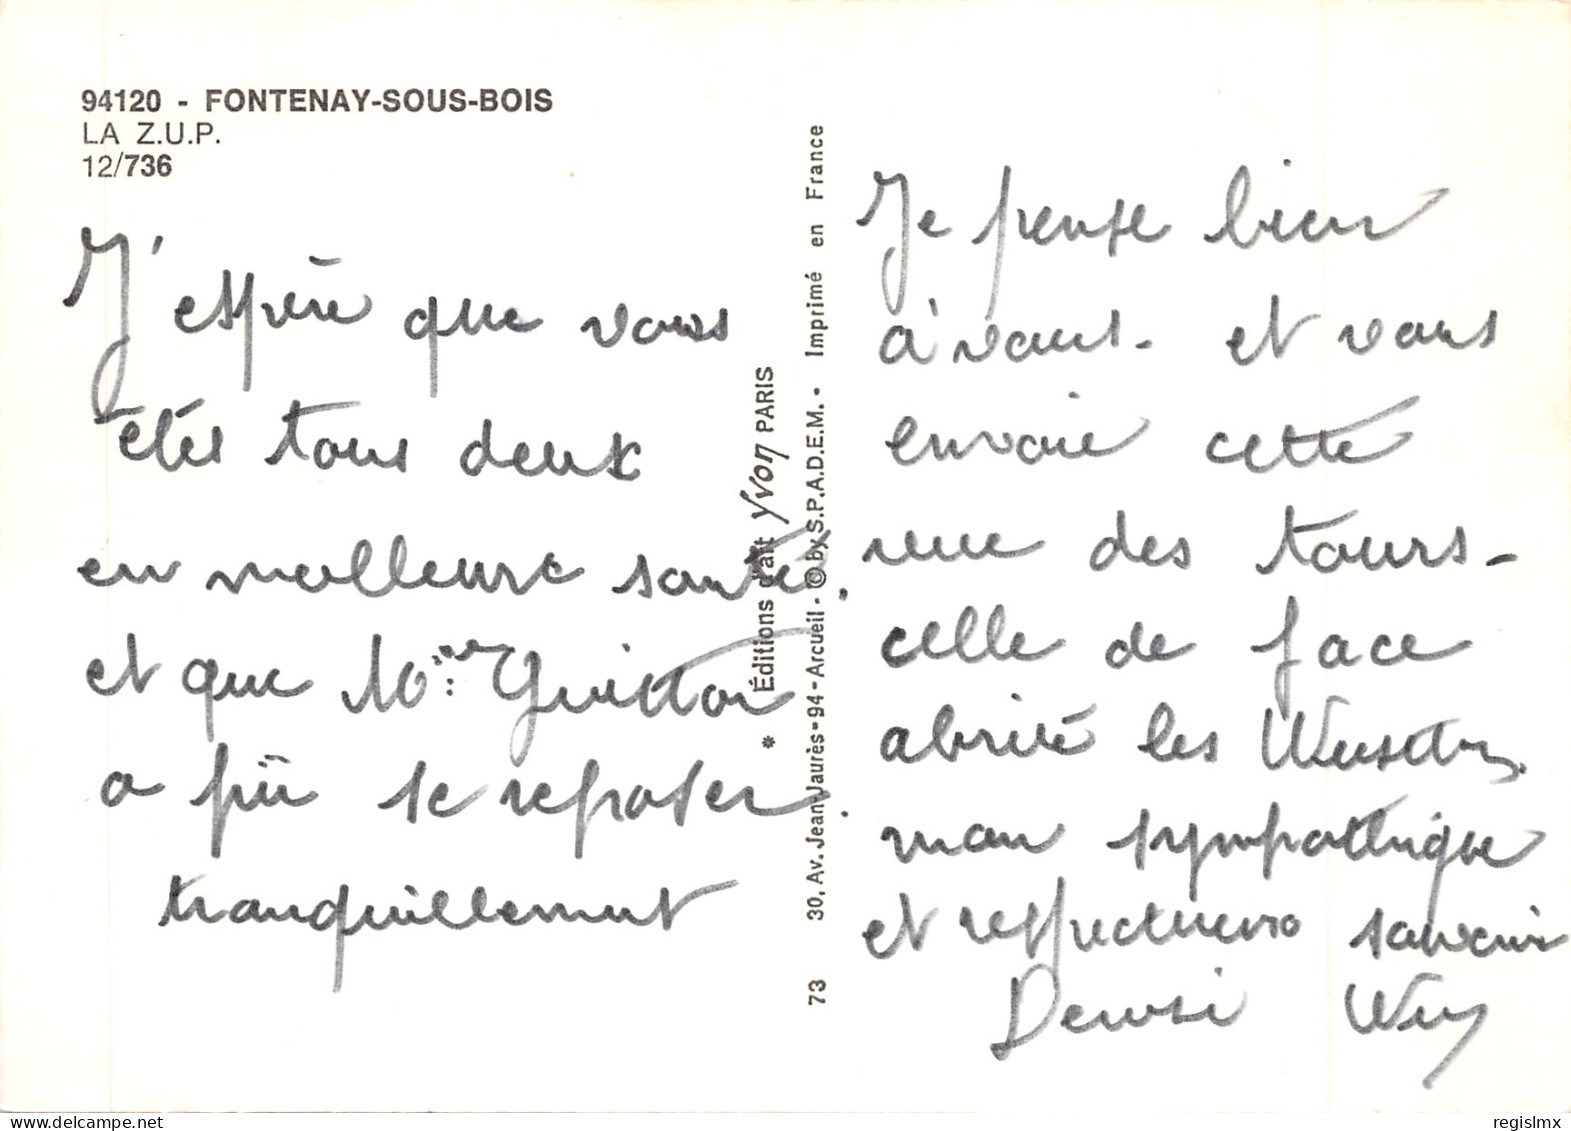 94120 - FONTENAY-SOUS-BOIS
LA Z.U.P.
12/736
J'espère que vous
êtes tous deux
en meilleure santé.
et que Mme Guitton
a pû se reposer.
tranquillement
* Éditions d'art Yvon PARIS
30, Av. Jean Jaurès - 94 - Arcueil - © by S.P.A.D.E.M. - Imprimé en France
73
Je pense bien
à vous - et vous
envoie cette
vue des tours -
celle de face
abrite les
mon sympathique
et respectueux souvenir
regislmx